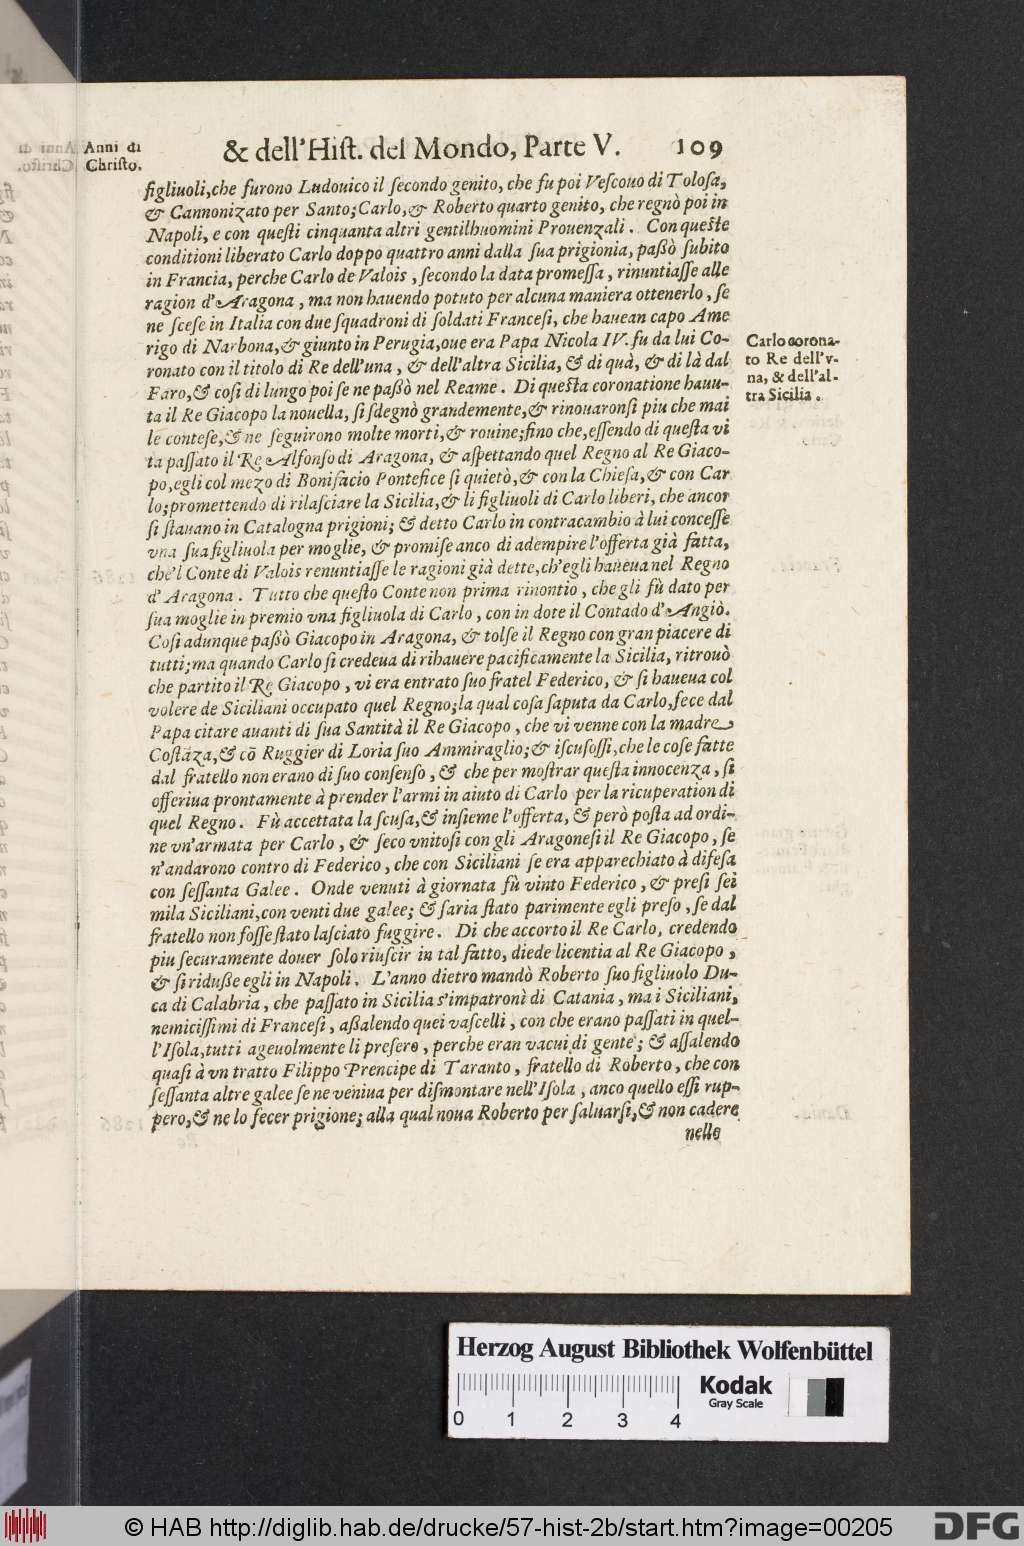 Anni di
Christo.
& dell'Hist. del Mondo, Parte V. 109
figliuoli, che furono Ludouico il secondo genito, che fu poi Vescouo di Tolosa,
& Cannonizato per Santo; Carlo, & Roberto quarto genito, che regnò poi in
Napoli, e con questi cinquanta altri gentilhuomini Prouenzali. Con queste
conditioni liberato Carlo doppo quattro anni dalla sua prigionia, passò subito
in Francia, perche Carlo de Valois, secondo la data promessa, rinuntiasse alle
ragion d'Aragona, ma non hauendo potuto per alcuna maniera ottenerlo, se
ne scese in Italia con due squadroni di soldati Francesi, che hauean capo Ame
rigo di Narbona, & giunto in Perugia, oue era Papa Nicola IV. fu da lui Co-
ronato con il titolo di Re dell'una, & dell'altra Sicilia, & di quà, & di là dal
Faro, & così di lungo poi se ne passò nel Reame. Di questa coronatione hauu-
ta il Re Giacopo la nouella, si sdegnò grandemente, & rinouaronsi piu che mai
le contese, & ne seguirono molte morti, & rouine; fino che, essendo di questa vi
ta passato il Re Alfonso di Aragona, & aspettando quel Regno al Re Giaco-
po, egli col mezo di Bonifacio Pontefice si quietò, & con la Chiesa, & con Car
lo; promettendo di rilasciare la Sicilia, & li figliuoli di Carlo liberi, che ancor
si stauano in Catalogna prigioni; & detto Carlo in contracambio à lui concesse
vna sua figliuola per moglie, & promise anco di adempire l'offerta già fatta,
che'l Conte di Valois renuntiasse le ragioni già dette, ch'egli haueua nel Regno
d'Aragona. Tutto che questo Conte non prima rinontio, che gli fù dato per
sua moglie in premio vna figliuola di Carlo, con in dote il Contado d'Angiò.
Cosi adunque passò Giacopo in Aragona, & tolse il Regno con gran piacere di
tutti; ma quando Carlo si credeua di rihauere pacificamente la Sicilia, ritrouò
che partito il Re Giacopo, vi era entrato suo fratel Federico, & si haueua col
volere de Siciliani occupato quel Regno; la qual cosa saputa da Carlo, fece dal
Papa citare auanti di sua Santità il Re Giacopo, che vi venne con la madre
Costāza, & cō Ruggier di Loria suo Ammiraglio; & iscusossi, che le cose fatte
dal fratello non erano di suo consenso, & che per mostrar questa innocenza, si
offeriua prontamente à prender l'armi in aiuto di Carlo per la ricuperation di
quel Regno. Fù accettata la scusa, & insieme l'offerta, & però posta ad ordi-
ne vn'armata per Carlo, & seco vnitosi con gli Aragonesi il Re Giacopo, se
n'andarono contro di Federico, che con Siciliani se era apparechiato à difesa
con sessanta Galee. Onde venuti à giornata fù vinto Federico, & presi sei
mila Siciliani, con venti due galee; & saria stato parimente egli preso, se dal
fratello non fosse stato lasciato fuggire. Di che accorto il Re Carlo, credendo
piu securamente douer solo riuscir in tal fatto, diede licentia al Re Giacopo,
& si ridusse egli in Napoli. L'anno dietro mandò Roberto suo figliuolo Du-
ca di Calabria, che passato in Sicilia s'impatronì di Catania, ma i Siciliani,
nemicissimi di Francesi, assalendo quei vascelli, con che erano passati in quel-
l'Isola, tutti ageuolmente li presero, perche eran vacui di gente; & assalendo
quasi à vn tratto Filippo Prencipe di Taranto, fratello di Roberto, che con
sessanta altre galee se ne veniua per dismontare nell'Isola, anco quello essi rup-
pero, & ne lo fecer prigione; alla qual noua Roberto per saluarsi, & non cadere
nelle
Carlo corona-
to Re dell'v-
na, & dell'al-
tra Sicilia.
Herzog August Bibliothek Wolfenbüttel
Kodak
Gray Scale
0 1 2 3 4
© HAB http://diglib.hab.de/drucke/57-hist-2b/start.htm?image=00205
DFG